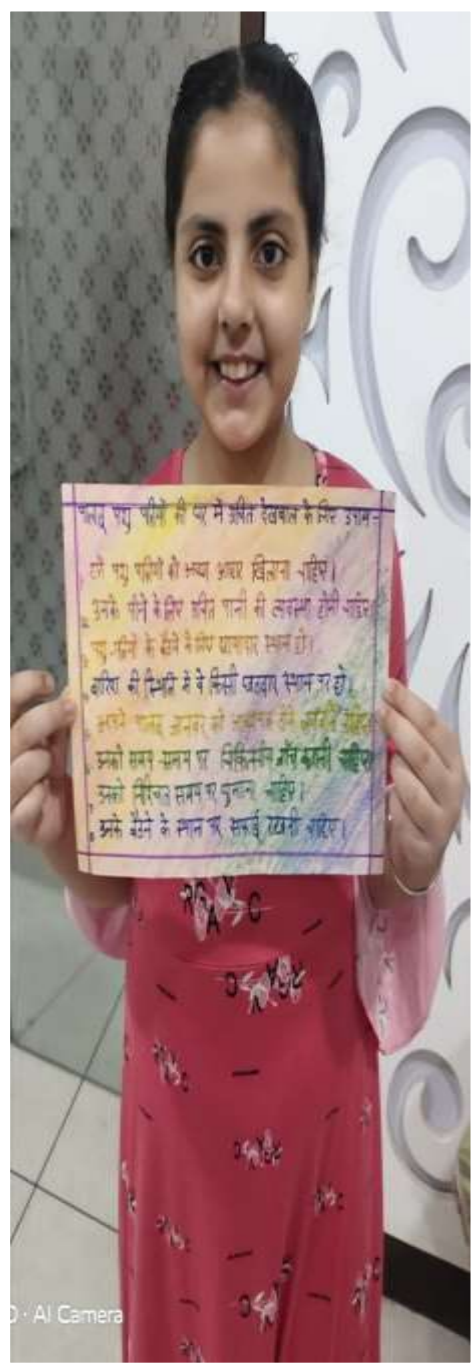 पालतू पशु पक्षियों की घर में उचित देखभाल के लिए उपाय -
हमें पशु पक्षियों को अच्छा आहार खिलाना चाहिए।
उनके पीने के लिए उचित पानी की व्यवस्था होनी चाहिए
पशु पक्षियों के बैठने के लिए छायादार स्थान हो।
बारिश की स्थिति में वे किसी छतदार स्थान पर हो।
अपने पालतू जानवर को चाहिए
उनको समय-समय पर चिकित्सीय जाँच करानी चाहिए
उनको निश्चित समय पर घुमाना चाहिए।
उनके बैठने के स्थान पर सफाई रखनी चाहिए।
AI Camera